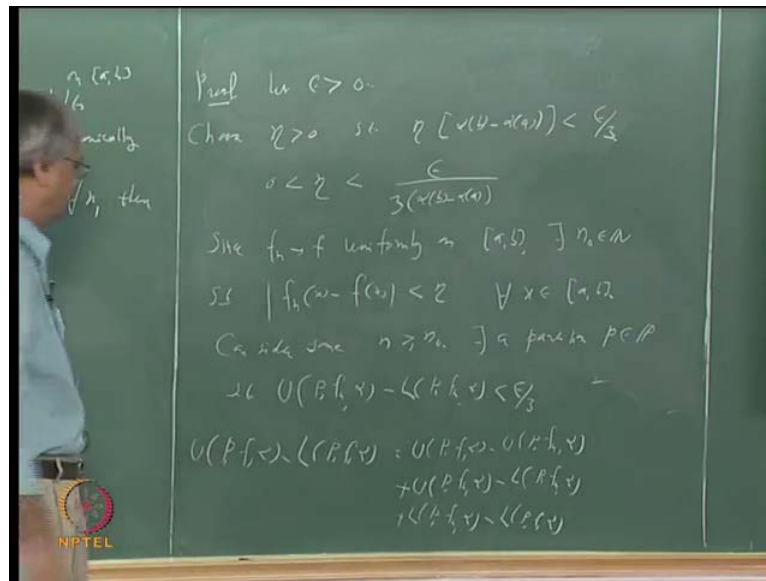 on [a,b]
monically
∀ n, then
Proof let ϵ > 0.
Choose η > 0 st η [α(b) - α(a)] < ϵ/3
0 < η < ϵ / 3(α(b) - α(a))
Since fn → f uniformly on [a,b], ∃ n₀ ∈ ℕ
st | fn(x) - f(x)| < η ∀ x ∈ [a,b].
Consider some n ≥ n₀. ∃ a partition P ∈ ℙ
st U(P, fn, α) - L(P, fn, α) < ϵ/3
U(P, f, α) - L(P, f, α) = U(P, f, α) - U(P, fn, α)
+ U(P, fn, α) - L(P, fn, α)
+ L(P, fn, α) - L(P, f, α)
NPTEL